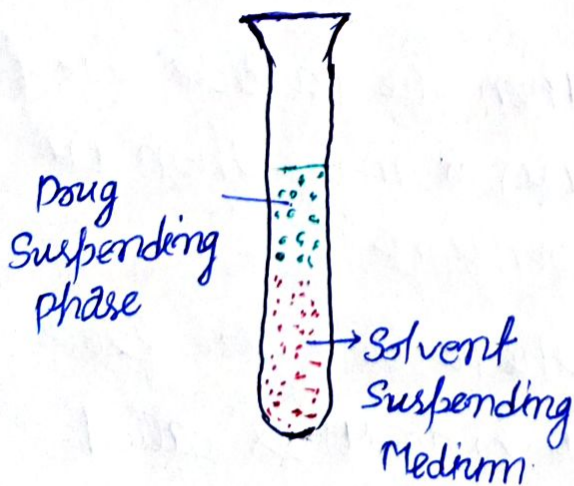 Drug
Suspending
phase
Solvent
Suspending
Medium